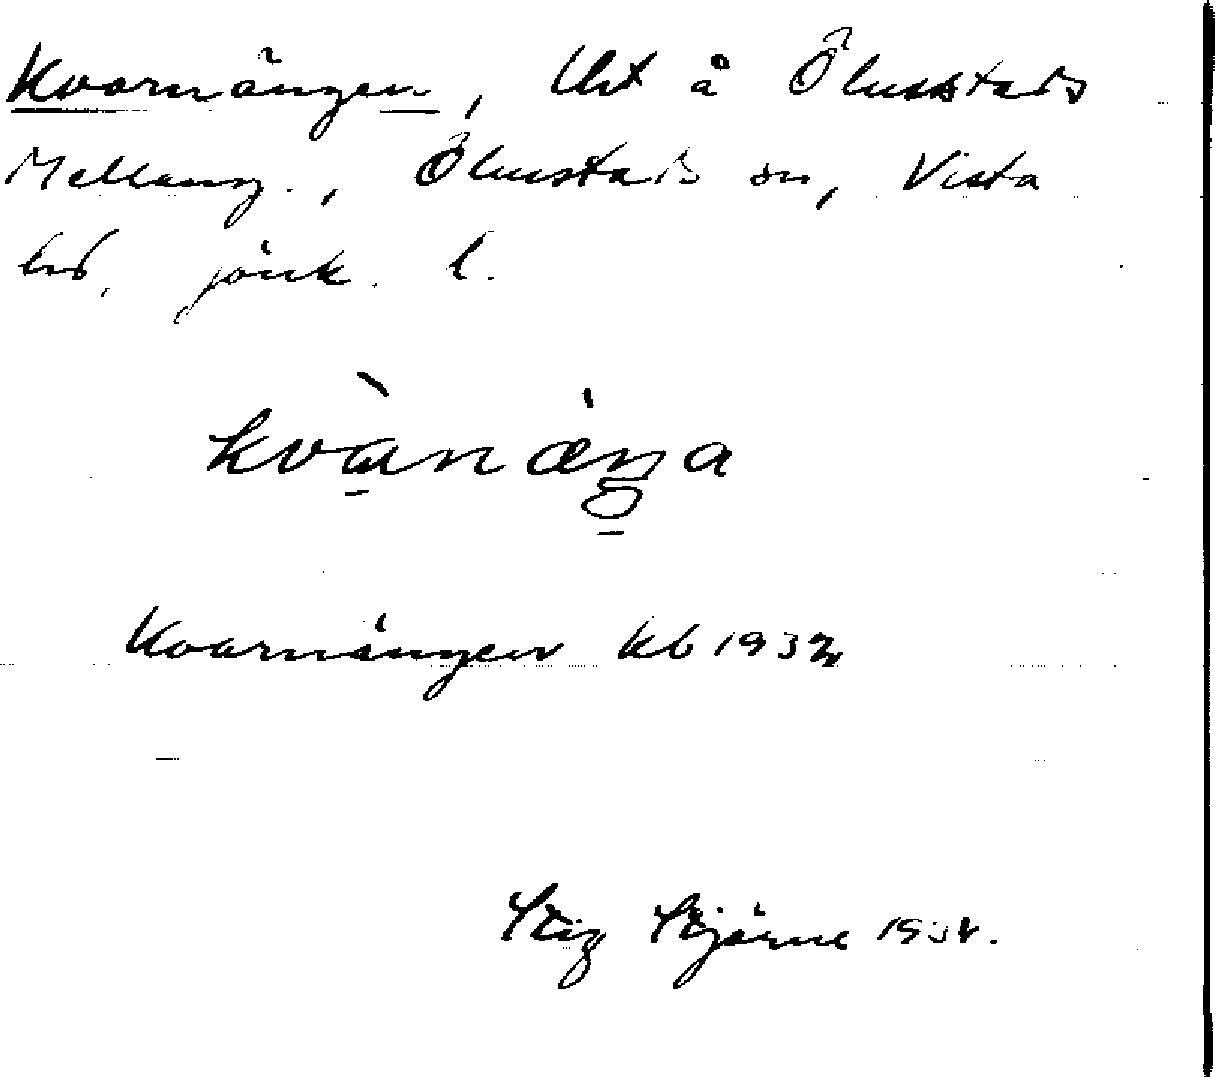 Kvarnängen, lht å Ölmstads
Mellang., Ölmstads sn, Vista
hd, jönk. l.
kvànæ̀ŋa
Kvarnängen kb 1932
Stig Stjärne 1934.